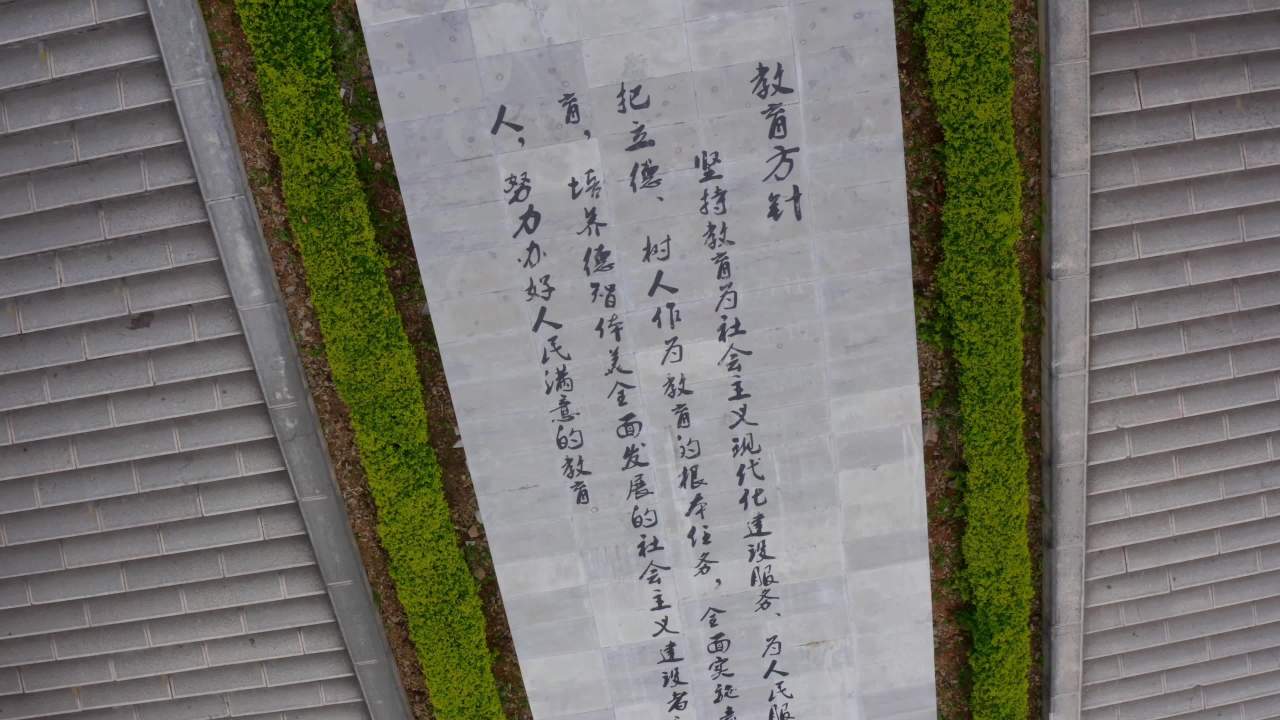 教育方针
坚持教育为社会主义现代化建设服务、为人民服
把立德、树人作为教育的根本任务，全面实施素
育，培养德智体美全面发展的社会主义建设者
人，努力办好人民满意的教育。